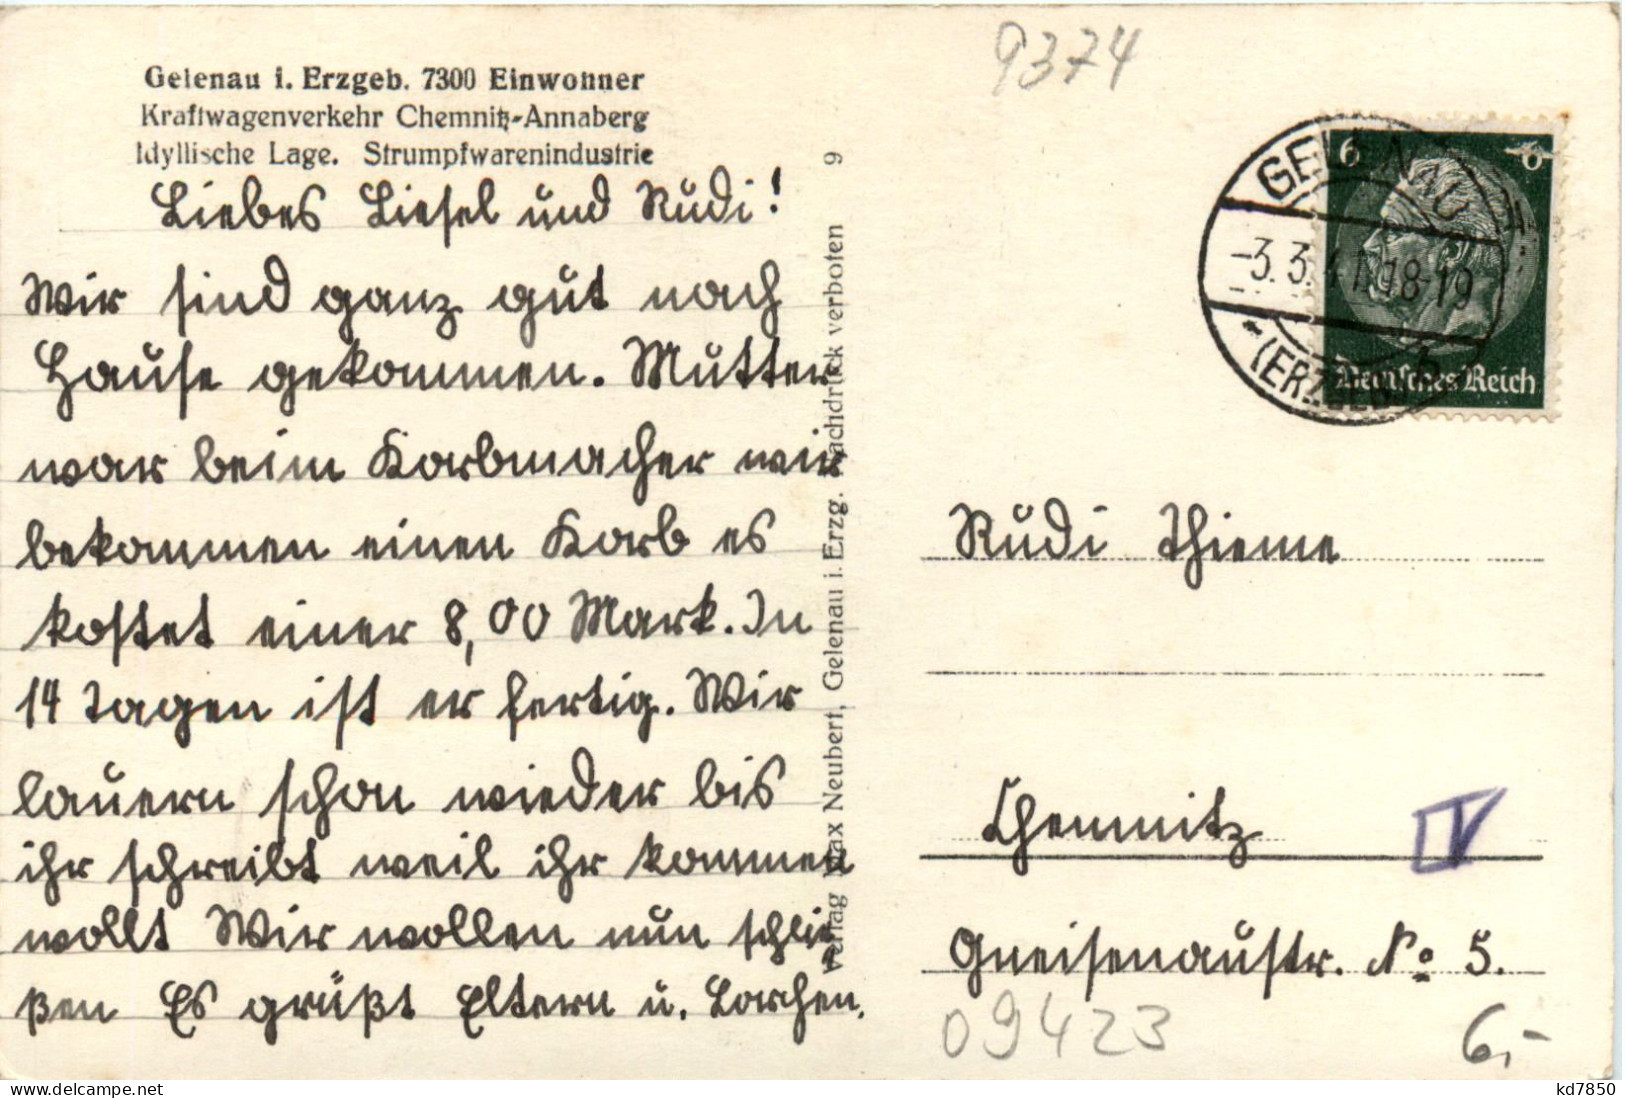 Gelenau i. Erzgeb. 7300 Einwohner
Kraftwagenverkehr Chemnitz-Annaberg
Idyllische Lage. Strumpfwarenindustrie
Liebes Liesel und Rudi!
Wir sind ganz gut nach
Hause gekommen. Mutter
war beim Korbmacher wir
bekommen einen Korb es
kostet einer 8,00 Mark. In
14 Tagen ist er fertig. Wir
lauern schon wieder bis
ihr schreibt weil ihr kommen
wollt Wir wollen nun schlie
ßen Es grüßt Eltern u. Lorchen.
Verlag Max Neubert, Gelenau i. Erzg. Nachdruck verboten 9
9374
6 6
Deutsches Reich
GELENAU
-3.3.41.18-19
*(ERZGEB) b
Rudi Thieme
Chemnitz
IV
Gneisenaustr. No 5.
09423
6,-
https://www.delcampe.net
kd7850